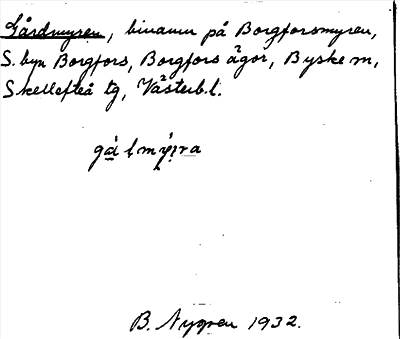 Gårdmyren, binamn på Borgforsmyren,
S. byn Borgfors, Borgfors ägor, Byske m,
Skellefteå tg, Västerb.l.
B. Nygren 1932.